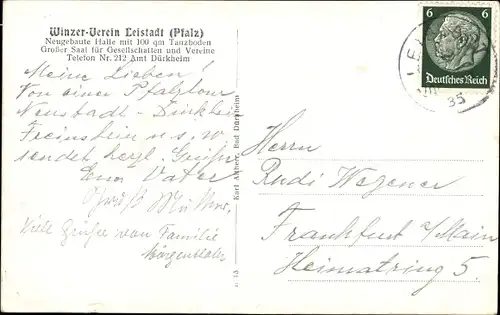 Winzer-Verein Leistadt (Pfalz)
Neugebaute Halle mit 100 qm Tanzboden
Großer Saal für Gesellschaften und Vereine
Telefon Nr. 212 Amt Dürkheim
Meine Lieben!
Von einer Pfalztour
Neustadt - Dürkheim
Freinsheim u. s. w.
sendet herzl. Grüße
Euer Vater
Gruß Mutter.
Viele Grüße von Familie
Karl Bad Dürkheim
6 6
Deutsches Reich
35
Herrn
Rudi Wegener
Frankfurt a/Main
Heimatring 5.